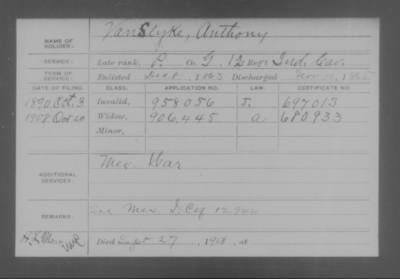 NAME OF SOLDIER: VanSlyke, Anthony
SERVICE: Late rank, P. Co G, 12 Reg't Ind. Cav.
TERM OF SERVICE: Enlisted 1863 Discharged Nov 1865
DATE OF FILING. CLASS. APPLICATION NO. LAW. CERTIFICATE NO.
1890 Oct. 3 Invalid, 958056 J. 697013
1908 Oct 20 Widow, 906.445 a 680933
Minor,
ADDITIONAL SERVICES: Mex War
REMARKS: Mex S. C. 12900
Died Sept 27, 1908, at